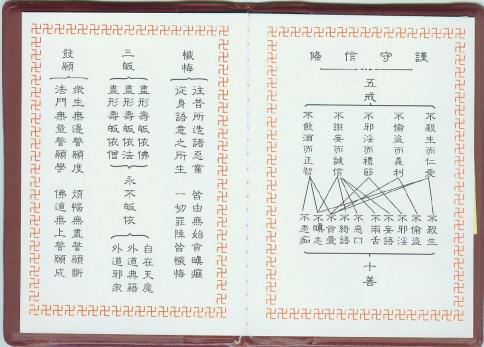 謹守信條
五戒
不殺生而仁愛
不偷盜而義利
不邪淫而禮節
不誑妄而誠信
不飲酒而正智
不殺生
不偷盜
不邪淫
不妄語
不兩舌
不惡口
不綺語
不貪愛
不瞋恚
不愚痴
十善
懺悔
往昔所造諸惡業 皆由無始貪瞋癡
從身語意之所生 一切罪障皆懺悔
三皈
盡形壽皈依佛
盡形壽皈依法
盡形壽皈依僧
永不皈依
自在天魔
外道典籍
外道邪眾
發願
眾生無邊誓願度 煩惱無盡誓願斷
法門無量誓願學 佛道無上誓願成